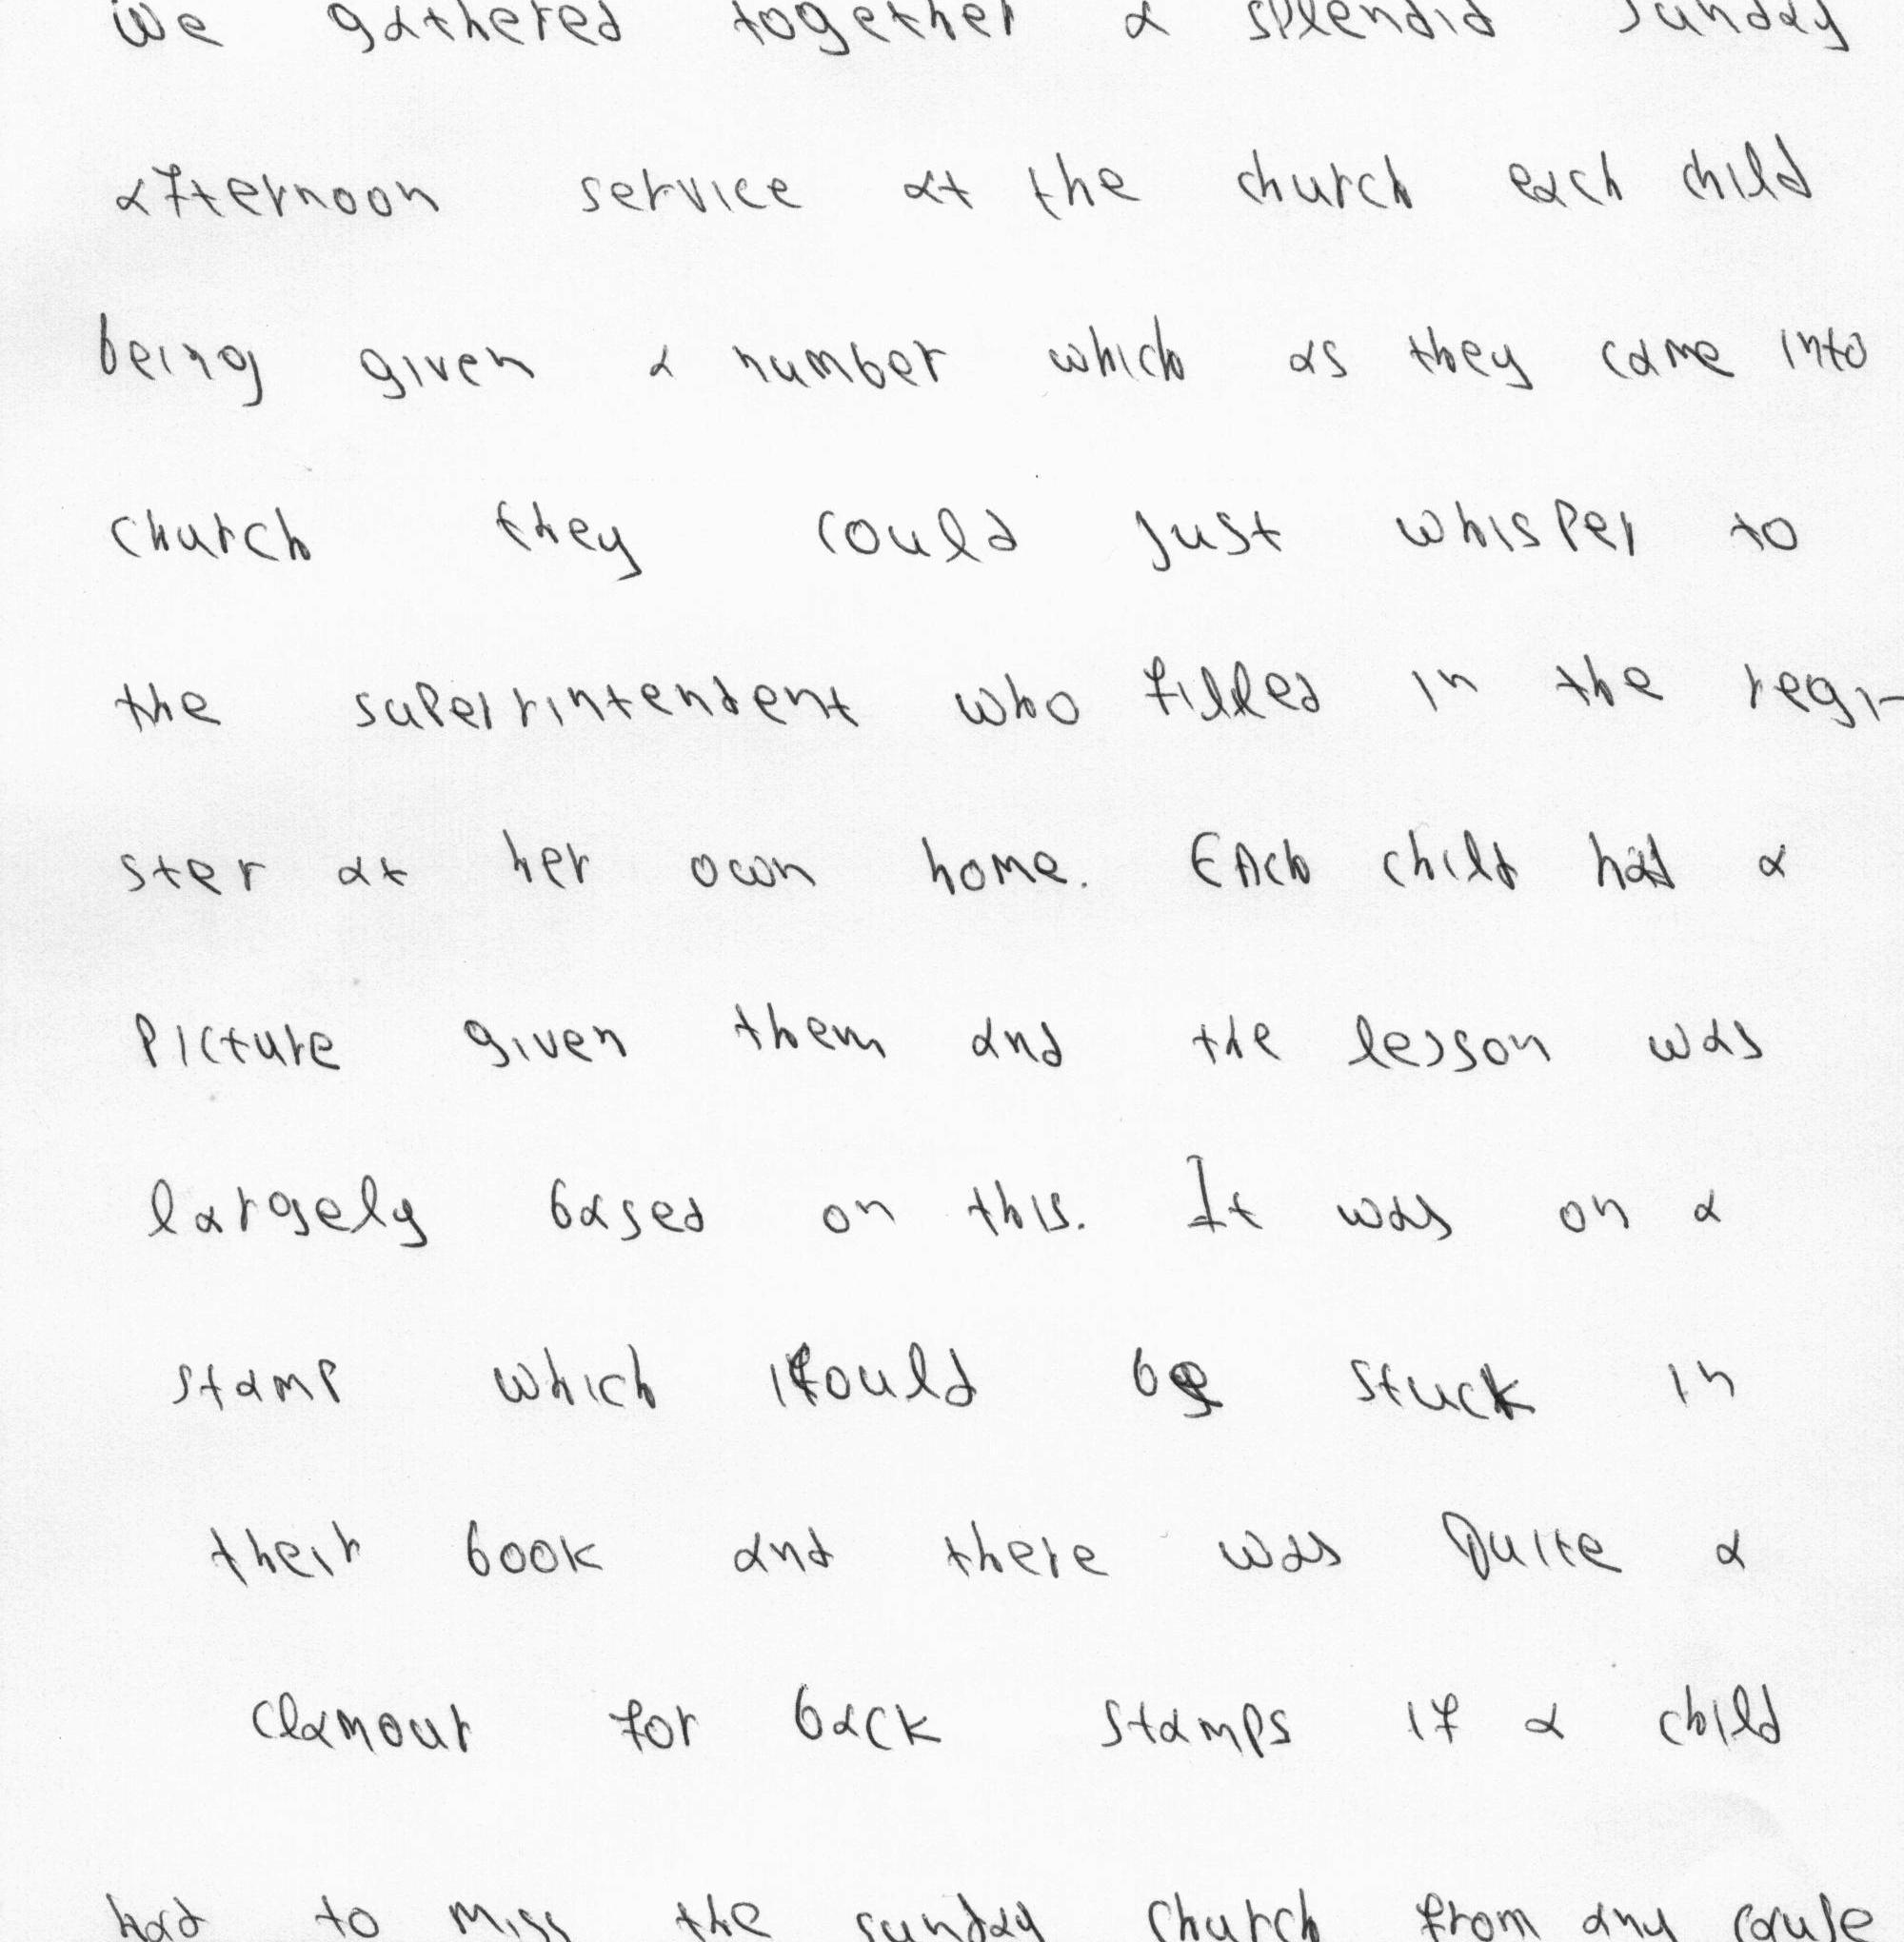 We gathered together a splendid Sunday
afternoon service at the church each child
being given a number which as they came into
church they could just whisper to
the superrintendent who filled in the regi-
ster at her own home. EAch child had a
picture given them and the lesson was
largely based on this. It was on a
stamp which could be stuck in
their book and there was Quite a
clamour for back stamps if a child
had to miss the sunday church from any cause